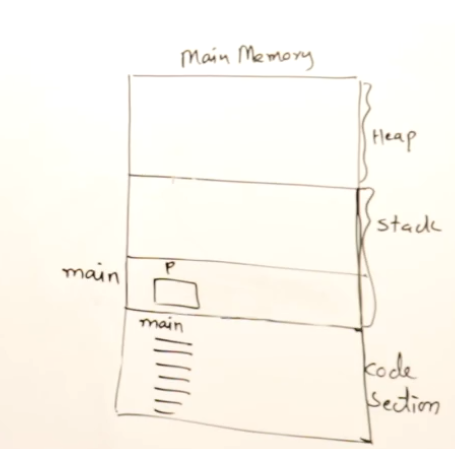 Main Memory
Heap
Stack
main
P
main
code
Section